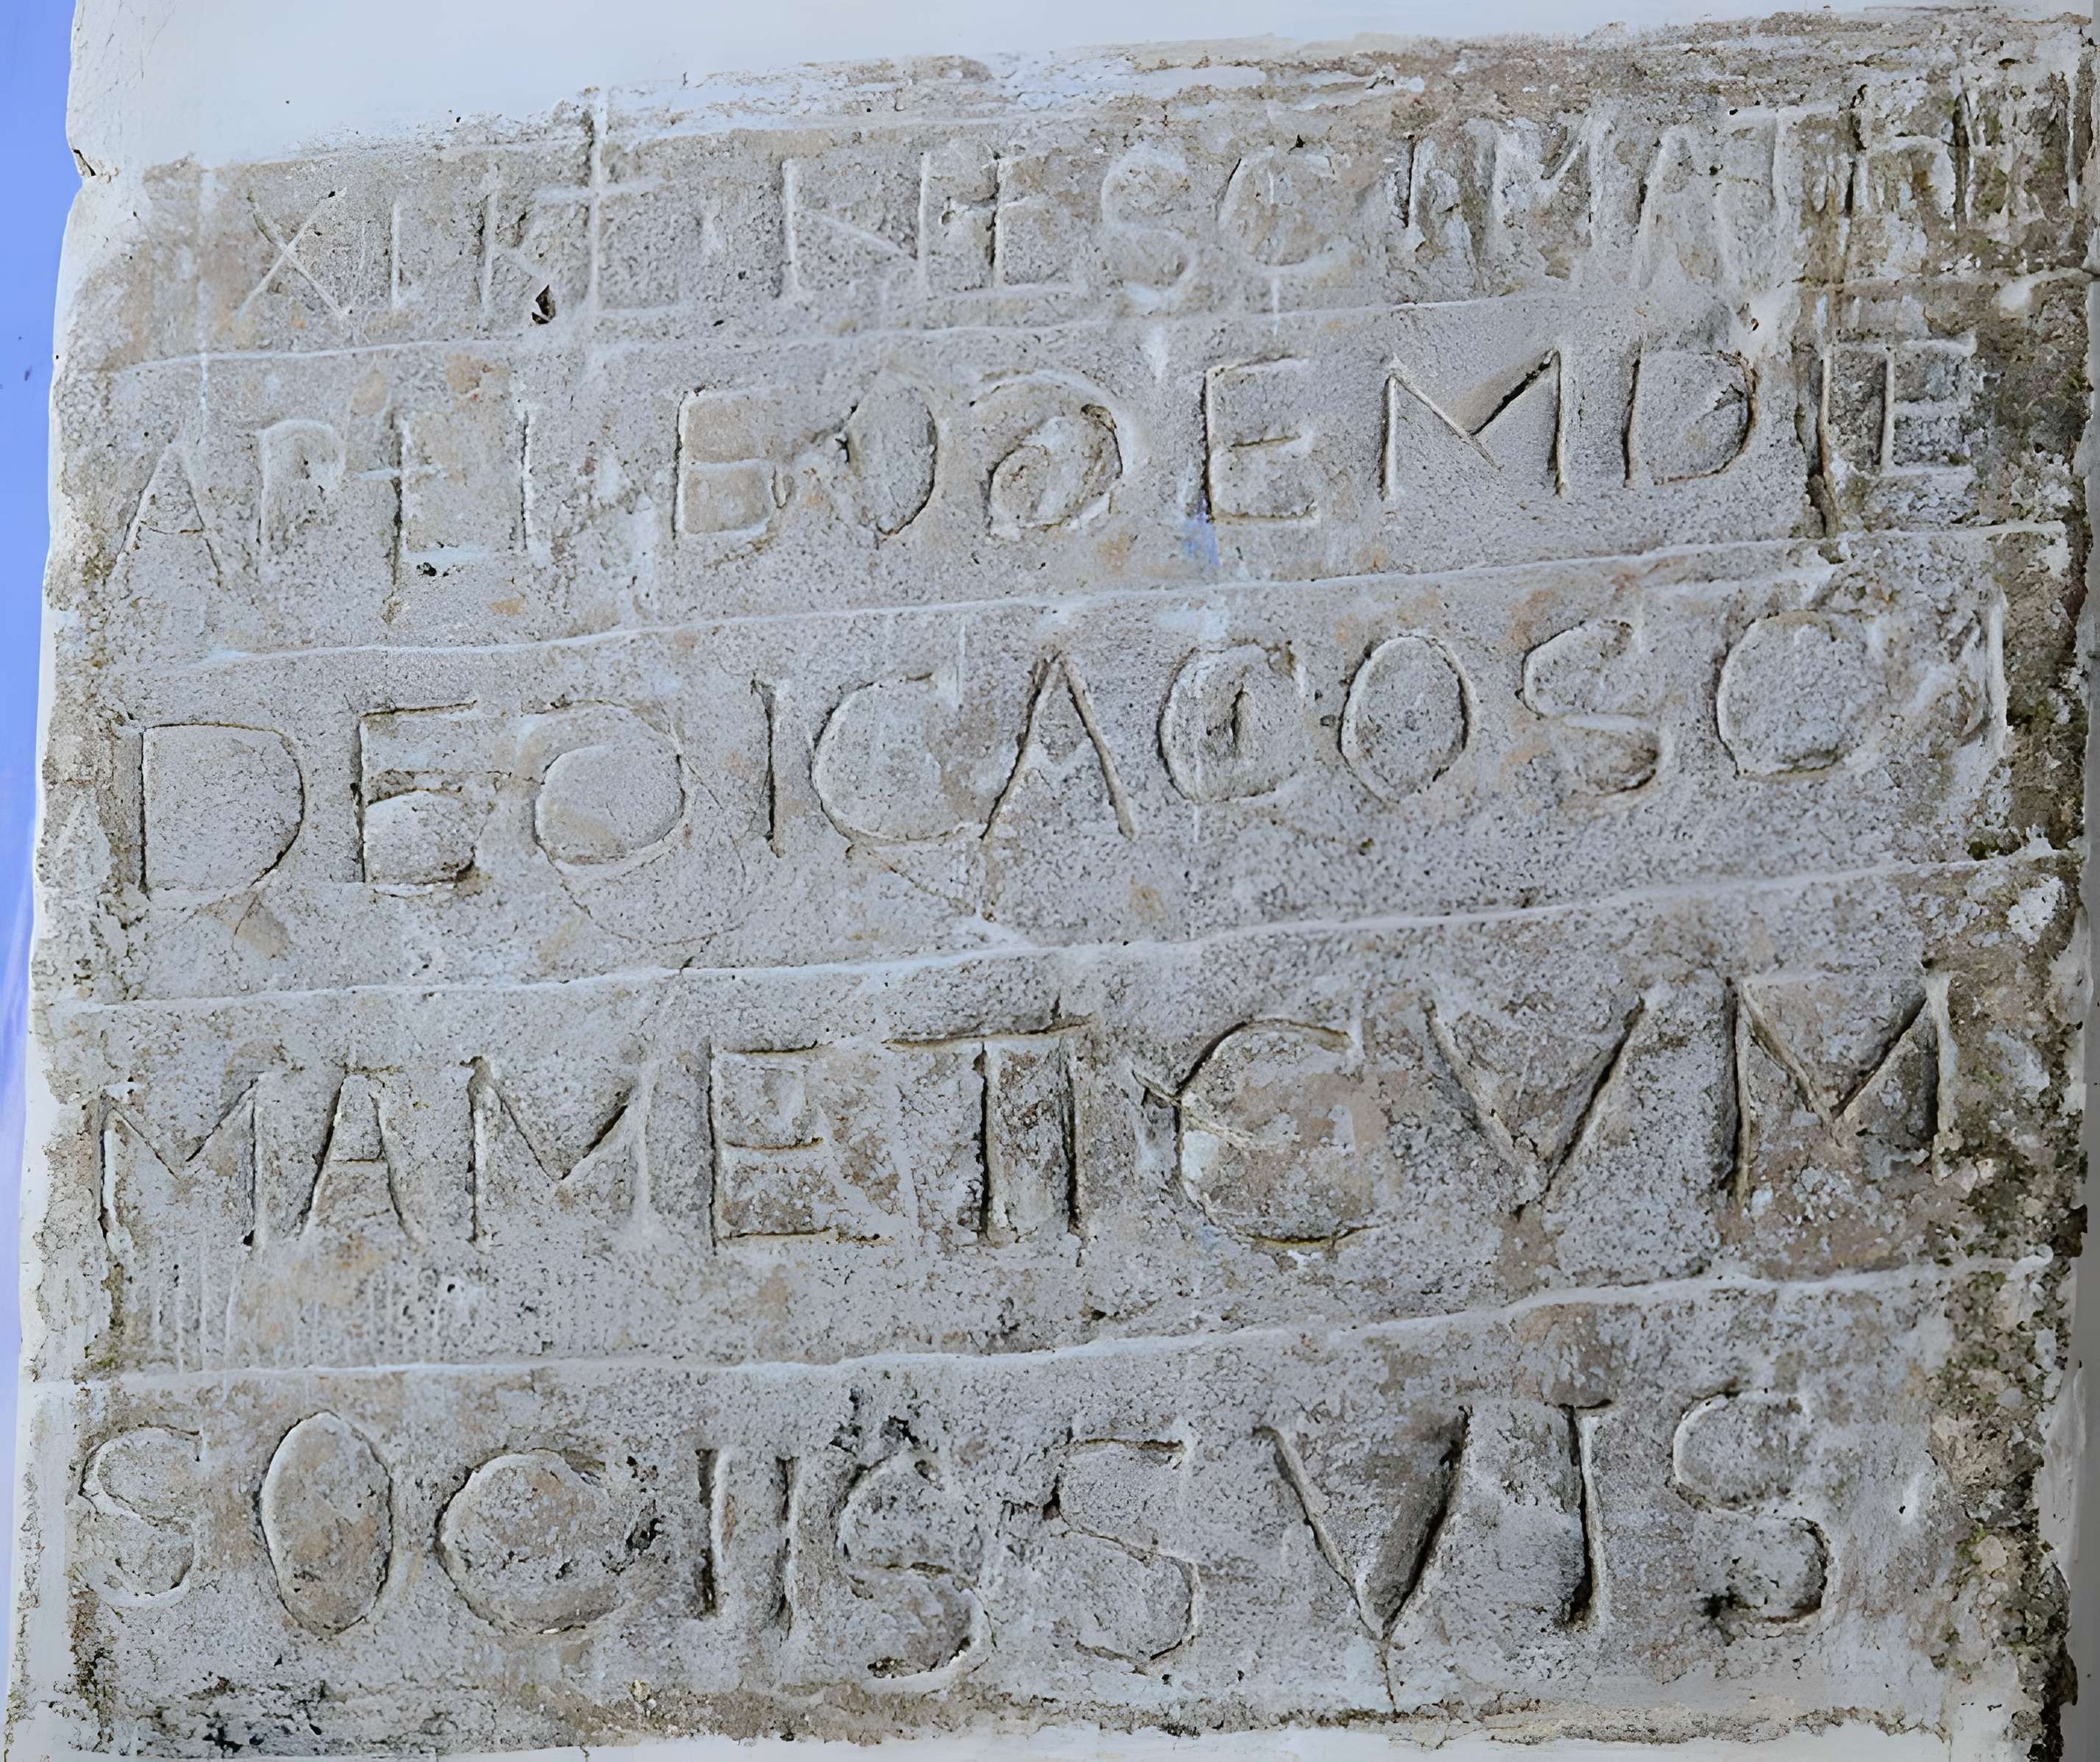 XII K L I NES SCI MATHI
APLI EODEM DIE
DEDICACO SCI
MAMETI CVM
SOCIIS SVIS